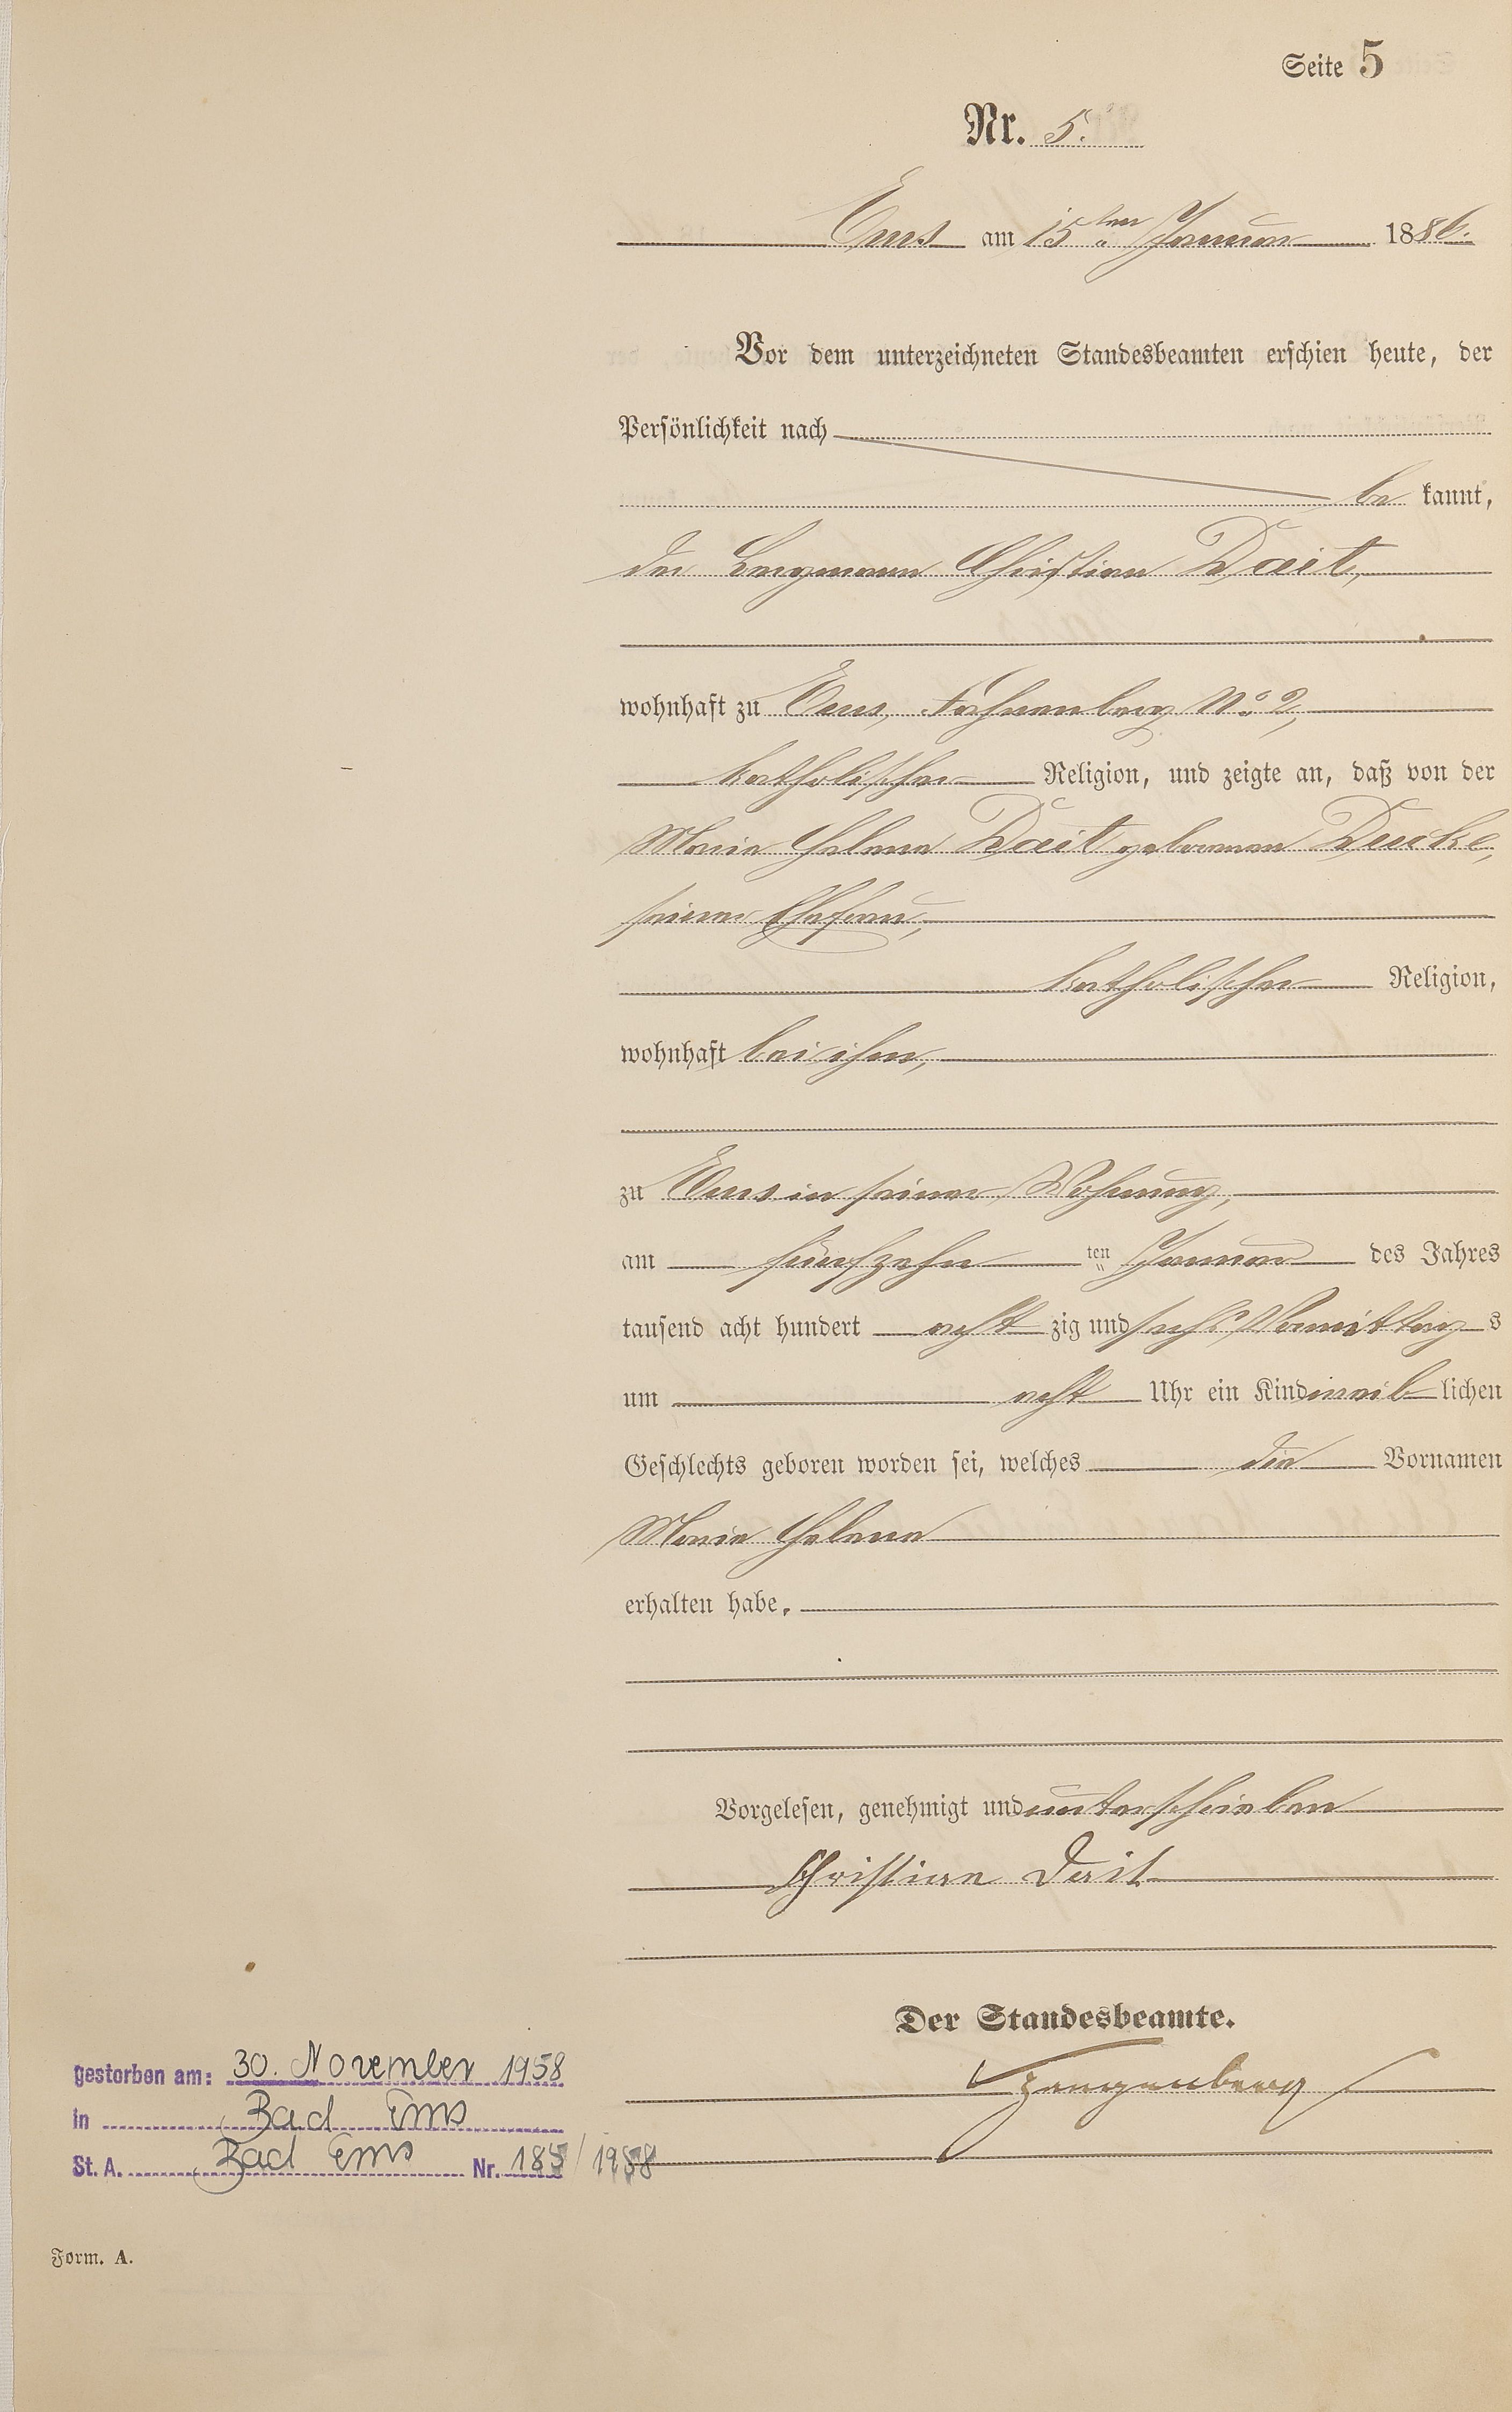 Seite 5
Nr. 5.
Ems am 15ten Januar 1886.
Vor dem unterzeichneten Standesbeamten erschien heute, der
Persönlichkeit nach
be kannt,
der Bergmann Christian Dait,
wohnhaft zu Ems, Fahnenberg No 2,
katholischer Religion, und zeigte an, daß von der
Marie Helena Dait geborenen Ducke,
seiner Ehefrau,
katholischer Religion,
wohnhaft bei ihm,
zu Ems in seiner Wohnung,
am fünfzehn ten Januar des Jahres
tausend acht hundert acht zig und sechs Vormittag s
um acht Uhr ein Kind weib lichen
Geschlechts geboren worden sei, welches die Vornamen
Marie Helena
erhalten habe.
Vorgelesen, genehmigt und unterschrieben
Christian Dait
Der Standesbeamte.
gestorben am: 30. November 1958
in Bad Ems
St. A. Bad Ems Nr. 185/1958
Form. A.